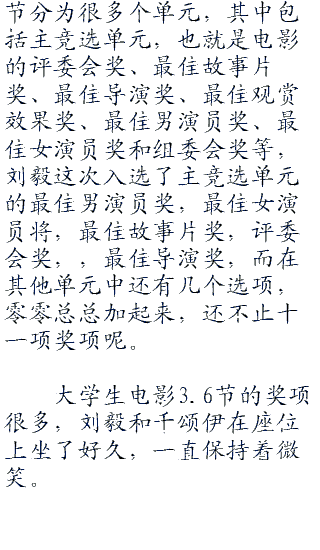 节分为很多个单元，其中包
括主竞选单元，也就是电影
的评委会奖、最住故事片
奖、最住导演奖、最住观赏
效果奖、最住男演员奖、最
住女演员奖和组委会奖等，
刘毅这次入选了主竞选单元
的最住男演员奖，最住女演
员将，最住故事片奖，评委
会奖，，最住导演奖，而在
其他单元中还有几个选项，
零零总总加起来，还不止十
一项奖项呢。
大学生电影3.6节的奖项
很多，刘毅和千颂伊在座位
上坐了好久，一直保持着微
笑。